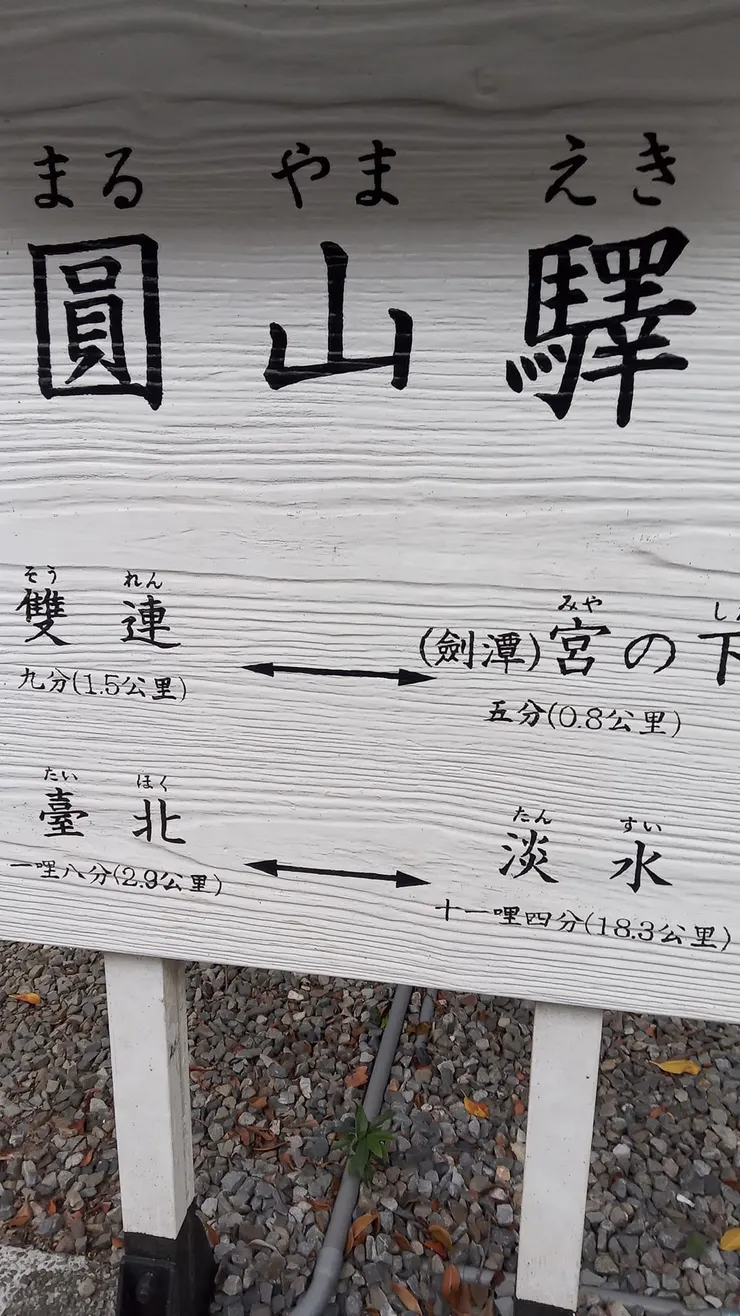 まる やま えき
圓 山 驛
そう れん
雙 連
九分(1.5公里)
みや
(劍潭)宮の下
五分(0.8公里)
たい ほく
臺 北
一哩八分(2.9公里)
たん すい
淡 水
十一哩四分(18.3公里)